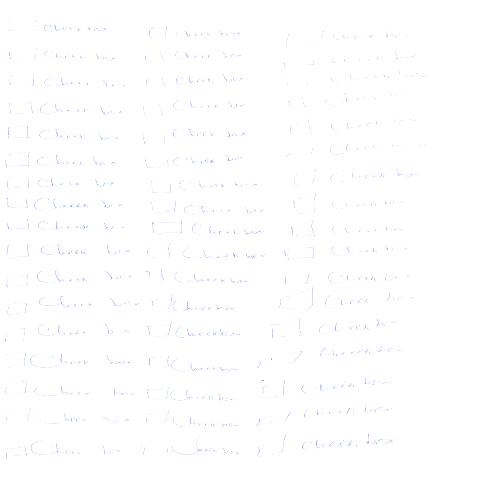 Check box Check box Check box
Check box Check box Check box
Check box Check box Check box
Check box Check box Check box
Check box Check box Check box
Check box Check box Check box
Check box Check box Check box
Check box Check box Check box
Check box Check box Check box
Check box Check box Check box
Check box Check box Check box
Check box Check box Check box
Check box Check box Check box
Check box Check box Check box
Check box Check box Check box
Check box Check box Check box
Check box Check box Check box